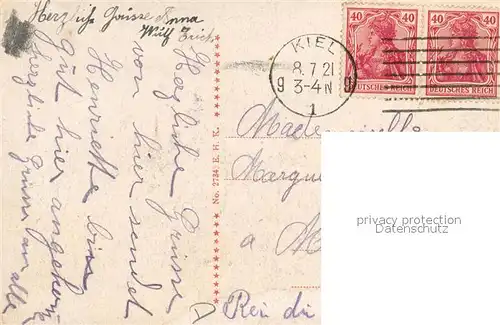 Herzliche Grüsse Anna
Wulf Erich
Herzliche Grüsse
von hier sendet
Henriette bin
gut hier angekom
herzliche Grüsse an alle
No. 2734 E.H.K.
KIEL
8.7.21
3-4 N
9 9
1
40 40
DEUTSCHES REICH
40 40
DEUTSCHES REICH
Mademoiselle
Margue
a M
privacy protection
Datenschutz